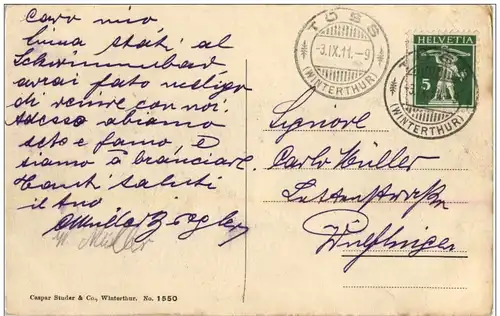 caro mio
siamo stati al
Schwimmbad
avrai fato meglio
di venire con noi.
Adesso abiamo
sete e famo, e
siamo a branciare.
Tanti saluti
il tuo
Müller Ziegler
Müller
TÖSS
-3.IX.11.-9
(WINTERTHUR)
HELVETIA
5
(WINTERTHUR)
Signore
Carlo Müller
Wülflingen
Caspar Studer & Co., Winterthur. No. 1550